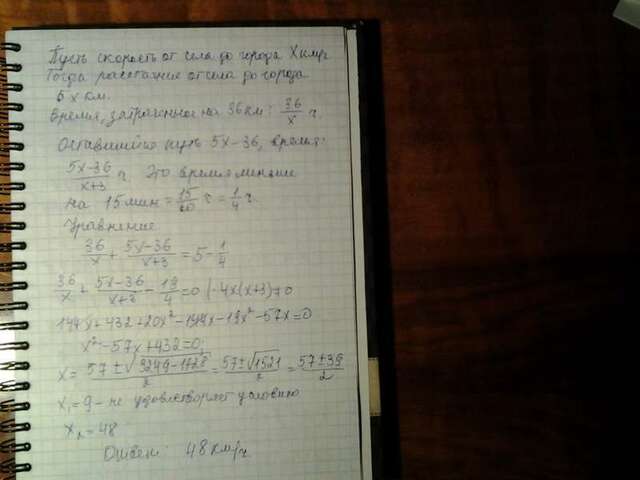 Пусть скорость от села до города X км/ч
Тогда расстояние от села до города
5x км.
Время, затраченное на 36 км: 36/x ч.
Оставшийся путь 5x-36, время:
(5x-36)/(x+3) ч. Это время меньше
на 15 мин = 15/60 ч = 1/4 ч
Уравнение
36/x + (5x-36)/(x+3) = 5 - 1/4
36/x + (5x-36)/(x+3) - 19/4 = 0 | ·4x(x+3) ≠ 0
144x + 432 + 20x² - 144x - 19x² - 57x = 0
x² - 57x + 432 = 0;
x = (57 ± √(3249-1728))/2 = (57 ± √1521)/2 = (57 ± 39)/2
x₁ = 9 - не удовлетворяет условию
x₂ = 48
Ответ: 48 км/ч